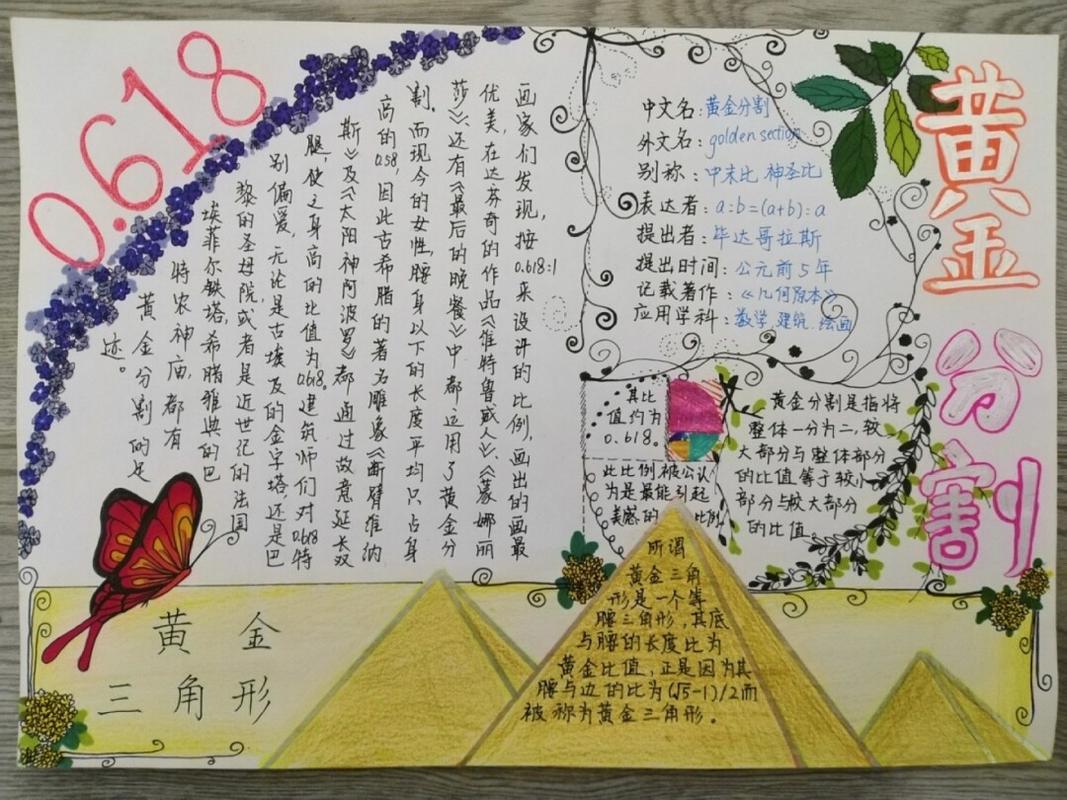 0.618
黄金分割
中文名：黄金分割
外文名：golden section
别称：中末比 神圣比
表达者：a:b=(a+b):a
提出者：毕达哥拉斯
提出时间：公元前5年
记载著作：《几何原本》
应用学科：数学 建筑 绘画
画家们发现，按0.618:1来设计的比例，画出的画最
优美，在达芬奇的作品《维特鲁威人》、《蒙娜丽
莎》、还有《最后的晚餐》中都运用了黄金分
割。而现今的女性，腰身以下的长度平均只占身
高的0.58，因此古希腊的著名雕像《断臂维纳
斯》及《太阳神阿波罗》都通过故意延长双
腿，使之身高的比值为0.618，建筑师们对0.618特
别偏爱，无论是古埃及的金字塔，还是巴
黎的圣母院，或者是近世纪的法国
埃菲尔铁塔，希腊雅典的巴
特农神庙，都有
黄金分割的足
迹。
其比
值约为
0.618。
此比例被公认
为是最能引起
美感的比例
黄金分割是指将
整体一分为二，较
大部分与整体部分
的比值等于较小
部分与较大部分
的比值
黄金
三角形
所谓
黄金三角
形是一个等
腰三角形，其底
与腰的长度比为
黄金比值，正是因为其
腰与边的比为(√5-1)/2而
被称为黄金三角形。